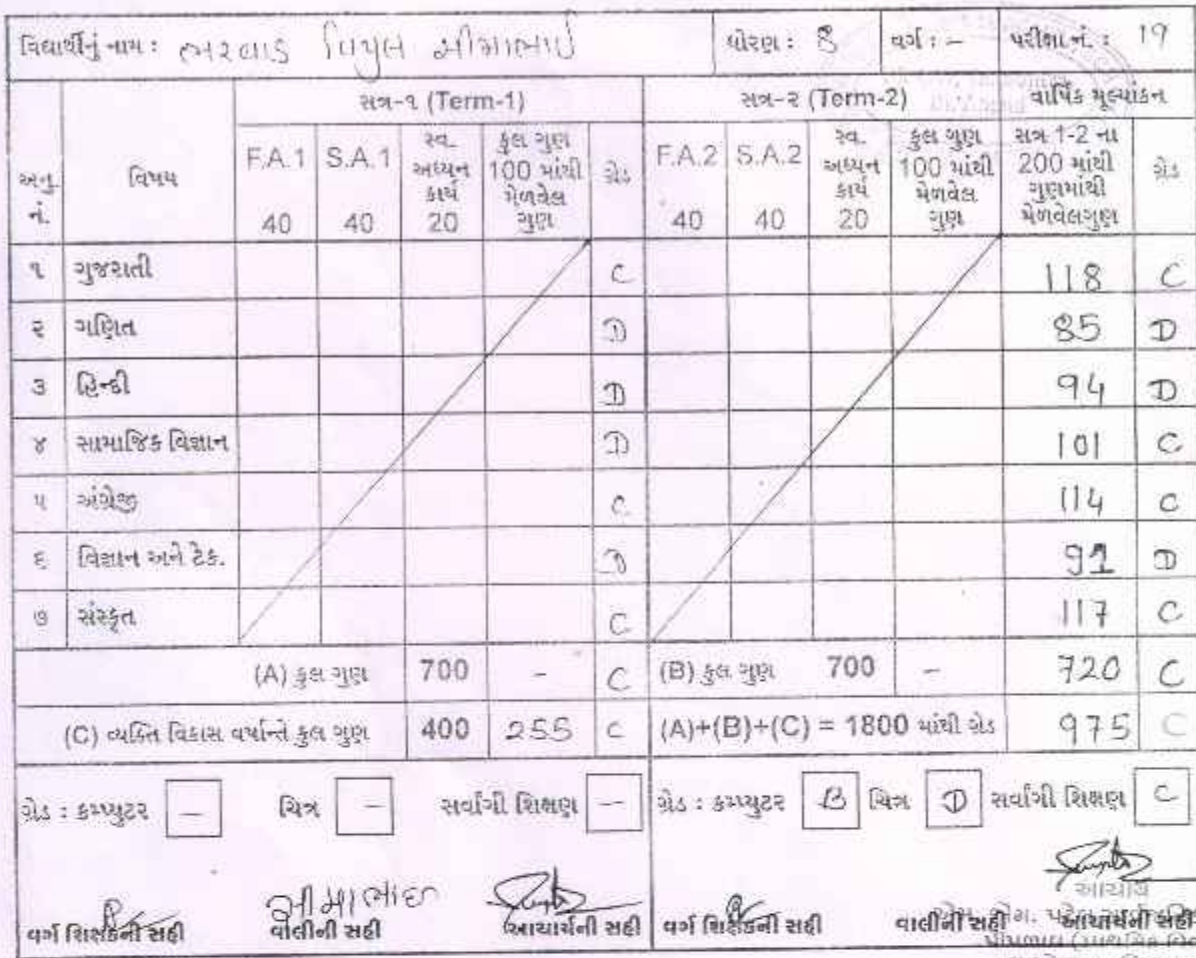 વિદ્યાર્થીનું નામ : ભરવાડ વિપુલ ભીમાભાઈ ધોરણ : 8 વર્ગ : – પરીક્ષા નં. : 19
સત્ર-૧ (Term-1) સત્ર-૨ (Term-2) વાર્ષિક મૂલ્યાંકન
અનુ. નં. વિષય F.A.1 40 S.A.1 40 સ્વ. અધ્યન કાર્ય 20 કુલ ગુણ 100 માંથી મેળવેલ ગુણ ગ્રેડ F.A.2 40 S.A.2 40 સ્વ. અધ્યન કાર્ય 20 કુલ ગુણ 100 માંથી મેળવેલ ગુણ સત્ર 1-2 ના 200 માંથી ગુણમાંથી મેળવેલગુણ ગ્રેડ
૧ ગુજરાતી C 118 C
૨ ગણિત D 85 D
૩ હિન્દી D 94 D
૪ સામાજિક વિજ્ઞાન D 101 C
૫ અંગ્રેજી C 114 C
૬ વિજ્ઞાન અને ટેક. D 91 D
૭ સંસ્કૃત C 117 C
(A) કુલ ગુણ 700 – C (B) કુલ ગુણ 700 – 720 C
(C) વ્યક્તિ વિકાસ વર્ષાન્તે કુલ ગુણ 400 255 C (A)+(B)+(C) = 1800 માંથી ગ્રેડ 975 C
ગ્રેડ : કમ્પ્યુટર – ચિત્ર – સર્વાંગી શિક્ષણ – ગ્રેડ : કમ્પ્યુટર B ચિત્ર D સર્વાંગી શિક્ષણ C
ભીમાભાઈ આચાર્ય
વર્ગ શિક્ષકની સહી વાલીની સહી આચાર્યની સહી વર્ગ શિક્ષકની સહી વાલીની સહી આચાર્યની સહી